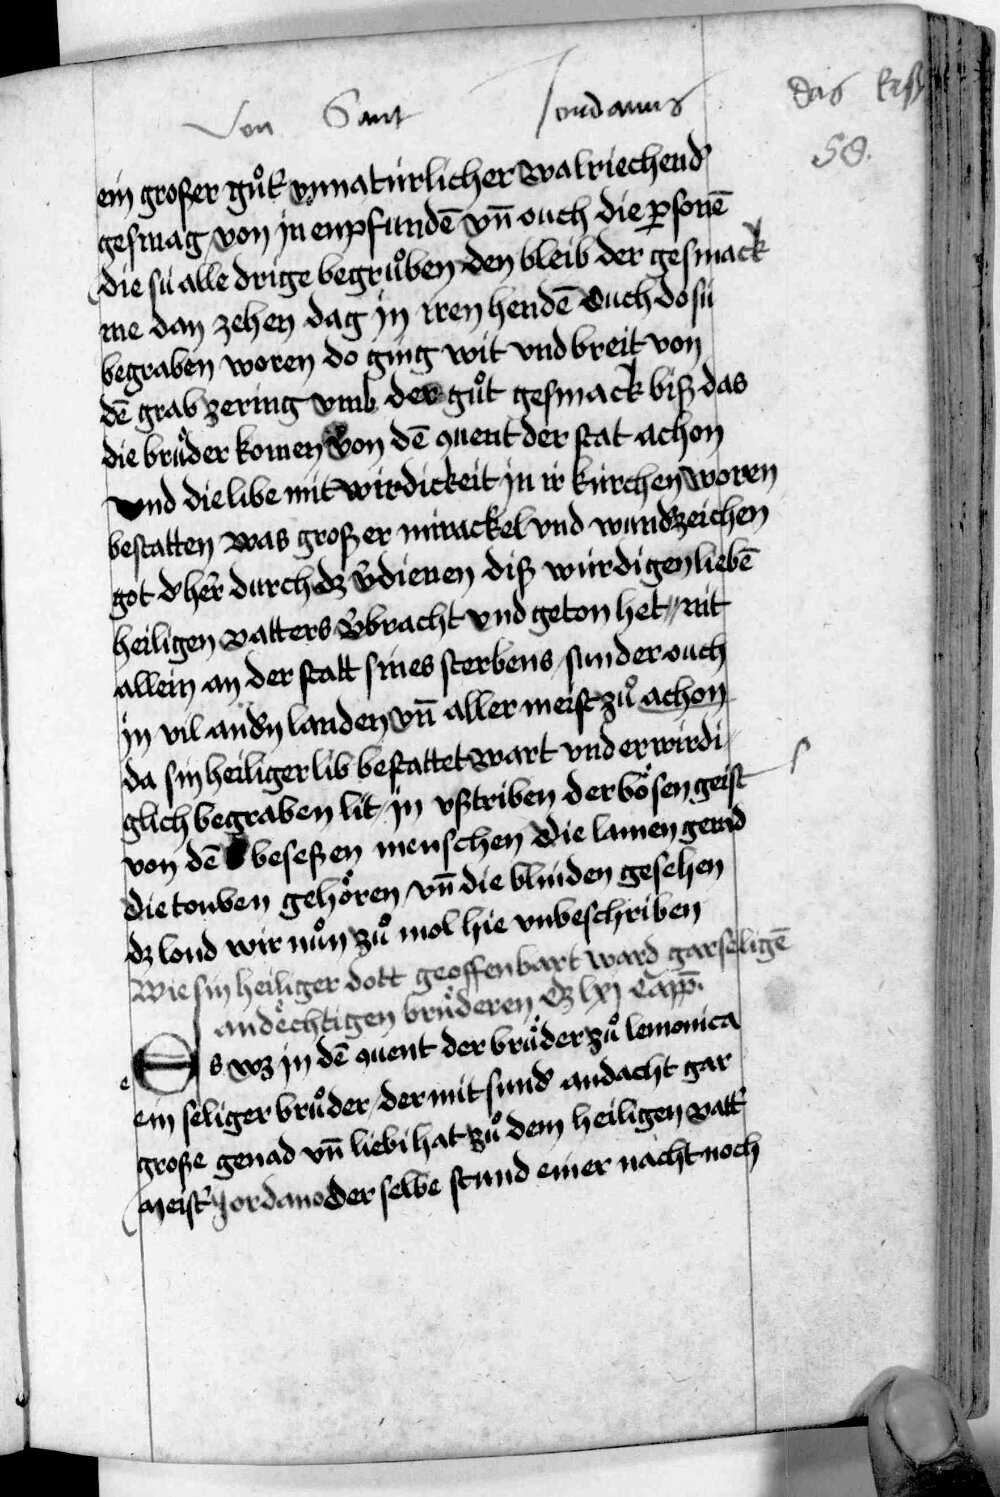 Von Sant Jordanus das
58.
ein großer gůt vnnaturlicher walriechend
gesmag von jn enpfundē vn̄ ouch die ꝑsonē
die sü alle drige begrůben den bleib der gesmack
me dan zehen dag jn iren hendē Ouch do sü
begraben woren do ging wit vnd breit von
dē grab zering vmb der gůt gesmack biß das
die brůder komen von dē 9uent der stat achon
vnd die libe mit wirdickeit jn ir kirchen woren
bestatten Was großer mirackel vnd wundzeichen
got d her durch dz v̄dienen diß würdigen liebē
heiligen vatters v̄bracht vnd geton het nit
allein an der statt sines sterbens sunder ouch
jn vil andn landen vn̄ aller meist zů achon
da sin heiliger lib bestattet wart vnd erwirdi
glich begraben lit jn vßtriben der bösen geist
von dē beseßen menschen die lamen gerad
die touben gehören vn̄ die blinden gesehen
dz lond wir nůn zů mol hie vnbeschriben
Wie sin heiliger dott geoffenbart ward gar seligē
andechtigen brůderen dz lxj capp.
Es wz jn dē 9uent der brůder zů lemonica
ein seliger brůder der mit sund andacht gar
große genad vn̄ liebi hat zů dem heiligen vatt
meist Jordano der selbe stund einer nacht noch